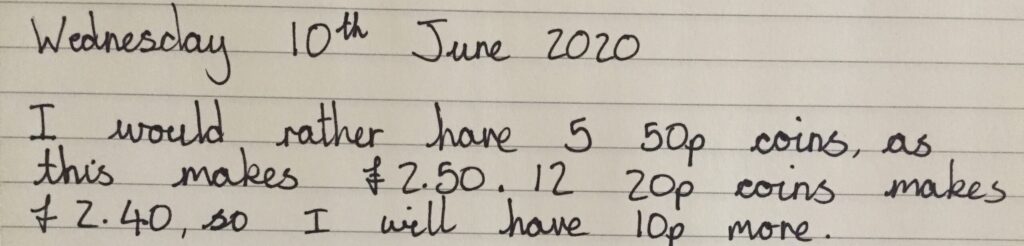 Wednesday 10th June 2020
I would rather have 5 50p coins, as
this makes £2.50. 12 20p coins makes
£2.40, so I will have 10p more.